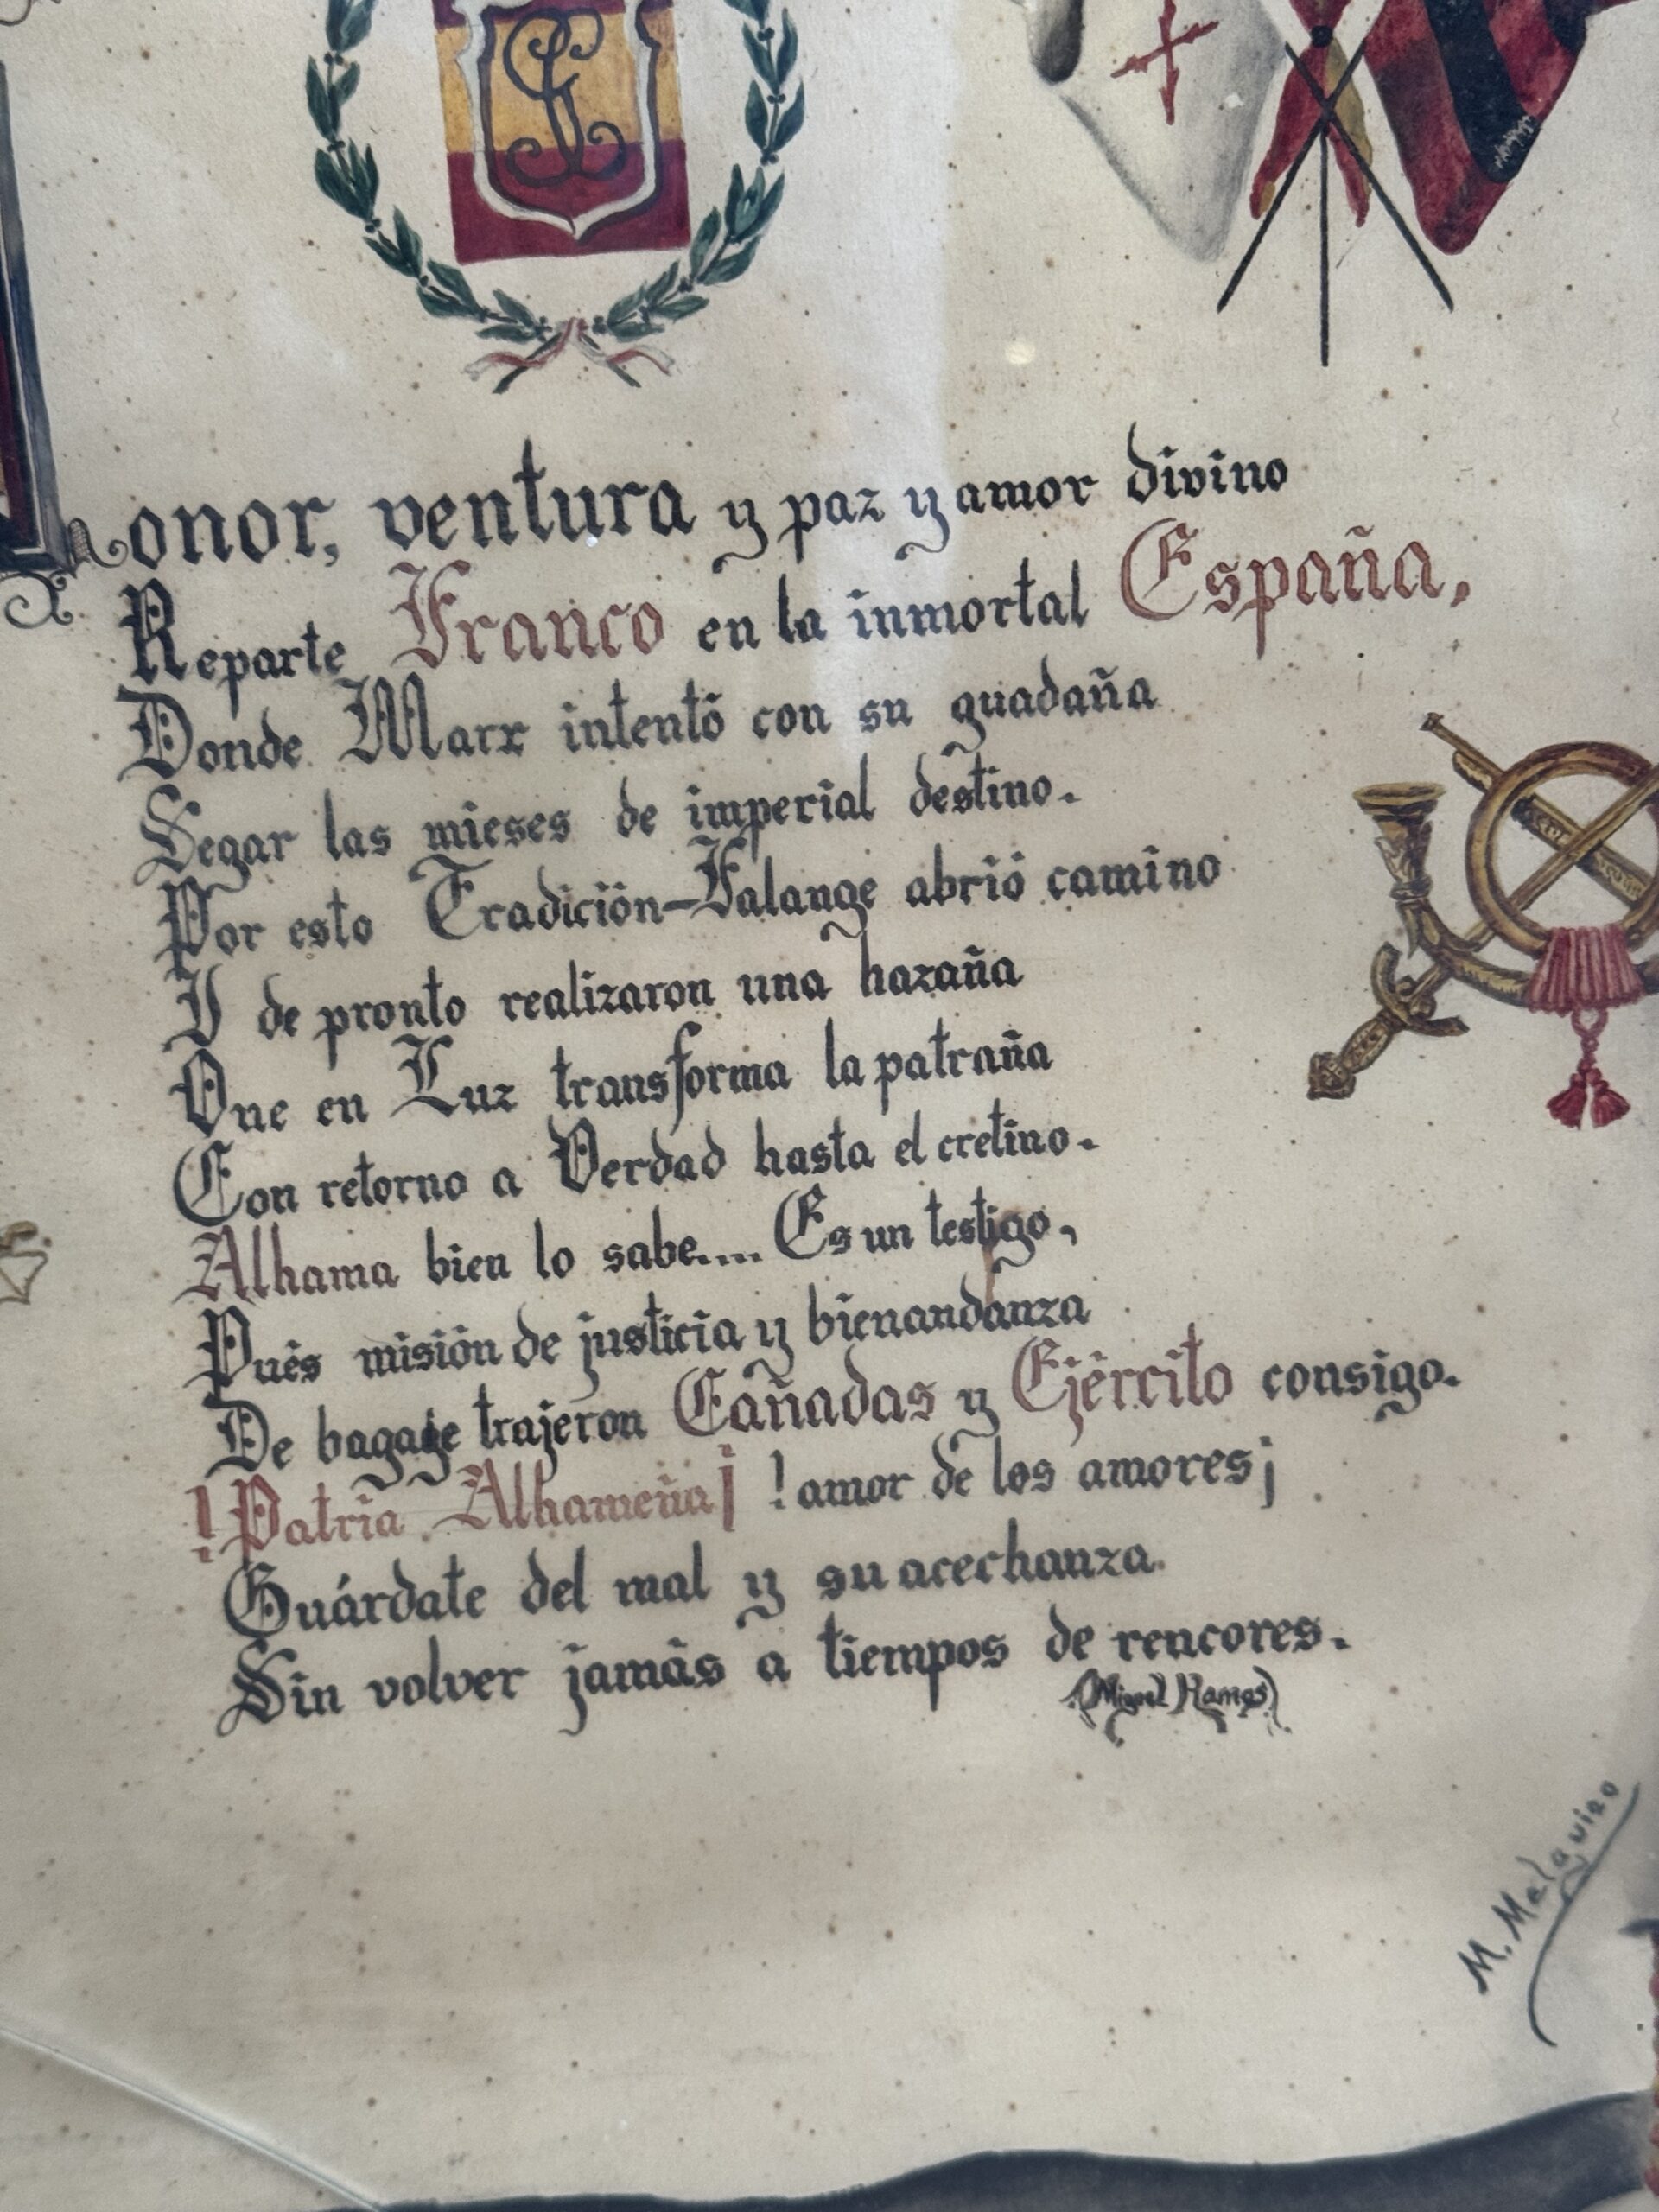 Honor, ventura y paz y amor divino
Reparte Franco en la inmortal España,
Donde Marx intentó con su guadaña
Segar las mieses de imperial destino.
Por esto Tradición-Falange abrió camino
Y de pronto realizaron una hazaña
Que en Luz transforma la patraña
Con retorno a Verdad hasta el cretino.
Alhama bien lo sabe.... Es un testigo,
Pués misión de justicia y bienandanza
De bagage trajeron Cañadas y Ejército consigo.
!Patria Alhameña¡ !amor de los amores¡
Guárdate del mal y su acechanza.
Sin volver jamás a tiempos de rencores.
(Miguel Ramos)
M. Malaguino